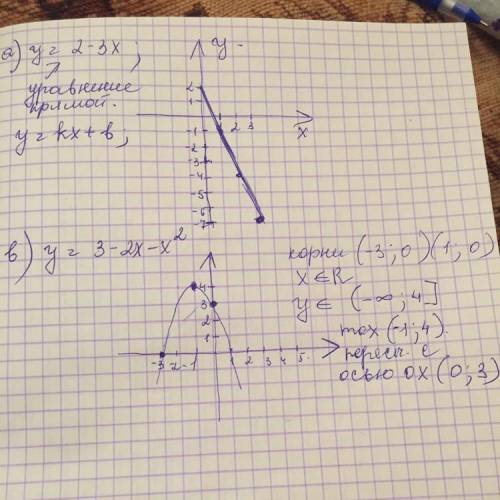 а) y = 2-3x;
уравнение
прямой.
y = kx + b,
y
2
1
-1
-2
-3
-4
-5
-6
-7
1 2 3
x
в) y = 3-2x-x²
4
3
2
1
-3 -2 -1 1 2 3 4 5
корни (-3; 0) (1; 0)
x ∈ R
y ∈ (-∞; 4]
max (-1; 4).
пересеч. с
осью ох (0; 3)